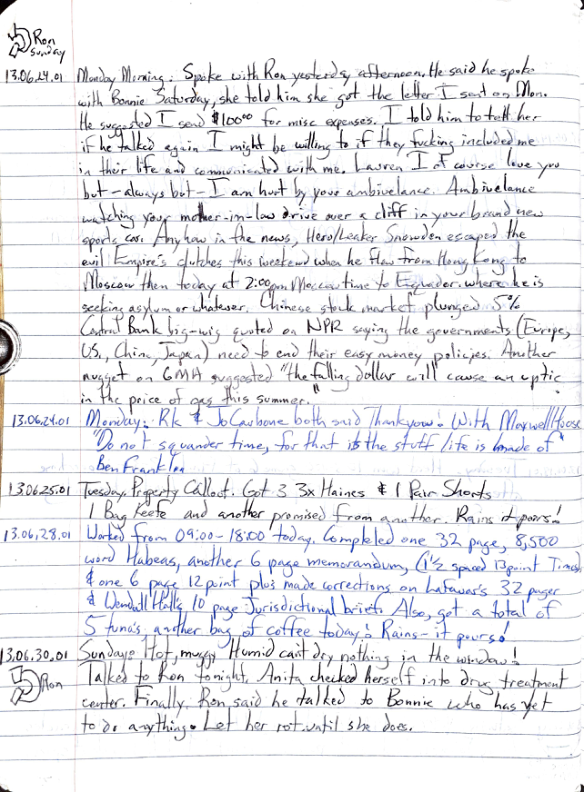 Ron
Sunday
13.06.24.01 Monday Morning: Spoke with Ron yesterday afternoon. He said he spoke
with Bonnie Saturday, she told him she got the letter I sent on Mon.
He suggested I send $100⁰⁰ for misc expenses. I told him to tell her
if he talked again I might be willing to if they fucking included me
in their life and communicated with me. Lauren I of course love you
but - always but - I am hurt by your ambivelance. Ambivelance
watching your mother-in-law drive over a cliff in your brand new
sports car. Anyhow in the news, Hero/Leaker Snowden escaped the
evil Empire's clutches this weekend when he flew from Hong Kong to
Moscow then today at 2:00pm Moccow time to Equador. where he is
seeking asylum or whatever. Chinese stock market plunged 5%
Central Bank big-wig quoted on NPR saying the governments (Europe,
US., China, Japan) need to end their easy money policies. Another
nugget on GMA suggested "the falling dollar will cause an uptic
in the price of gas this summer."
13.06.24.01 Monday: Rk & Jo Carbone both said Thankyou! With Maxwell House
"Do not squander time, for that is the stuff life is made of"
Ben Franklin
13.06.25.01 Tuesday. Property Callout. Got 3 3x Haines & 1 Pair Shorts
1 Bag Keefe and another promised from another. Rains it pours!
13.06.28.01 Worked from 09:00-18:00 today. Completed one 32 page, 8,500
word Habeas, another 6 page memorandum, (1½ spaced 13point Times)
& one 6 page 12 point plus made corrections on 32 pager
& Wendall Hall's 10 page Jurisdictional brief. Also, got a total of
5 tuna's another bag of coffee today! Rains - it pours!
13.06.30.01 Sunday: Hot, muggy Humid can't dry nothing in the window!
Ron Talked to Ron tonight. Anita checked herself into drug treatment
center. Finally, Ron said he talked to Bonnie who has yet
to do anything. Let her rot until she does.